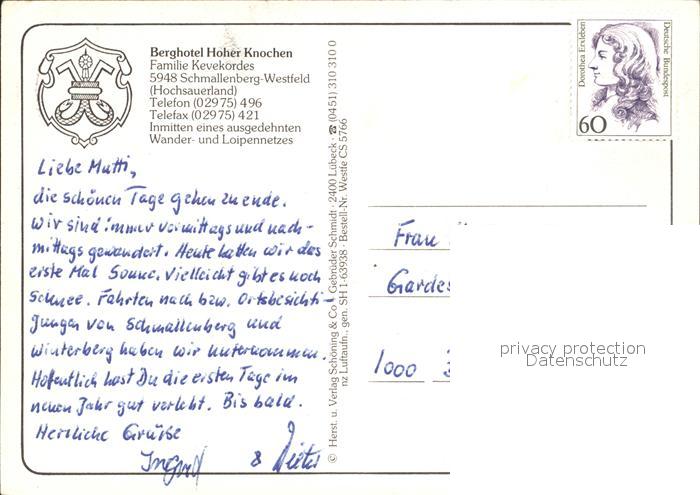 Berghotel Hoher Knochen
Familie Kevekordes
5948 Schmallenberg-Westfeld
(Hochsauerland)
Telefon (0 29 75) 4 96
Telefax (0 29 75) 4 21
Inmitten eines ausgedehnten
Wander- und Loipennetzes
Liebe Mutti,
die schönen Tage gehen zu ende.
Wir sind immer vormittags und nach-
mittags gewandert. Heute hatten wir das
erste Mal Sonne. Vielleicht gibt es noch
Schnee. Fahrten nach bzw. Ortsbesichti-
gungen von Schmallenberg und
Winterberg haben wir unternommen.
Hoffentlich hast Du die ersten Tage im
neuen Jahr gut verlebt. Bis bald.
Herzliche Grüße
Ingrid & Dieter
© Herst. u. Verlag Schöning & Co · Gebrüder Schmidt · 2400 Lübeck · ☎ (0451) 310 310 0
nz Luftaufn., gen. SH 1-63938 · Bestell-Nr. Westfe CS 5766
Dorothea Erxleben
Deutsche Bundespost
60
Frau
1000
privacy protection
Datenschutz